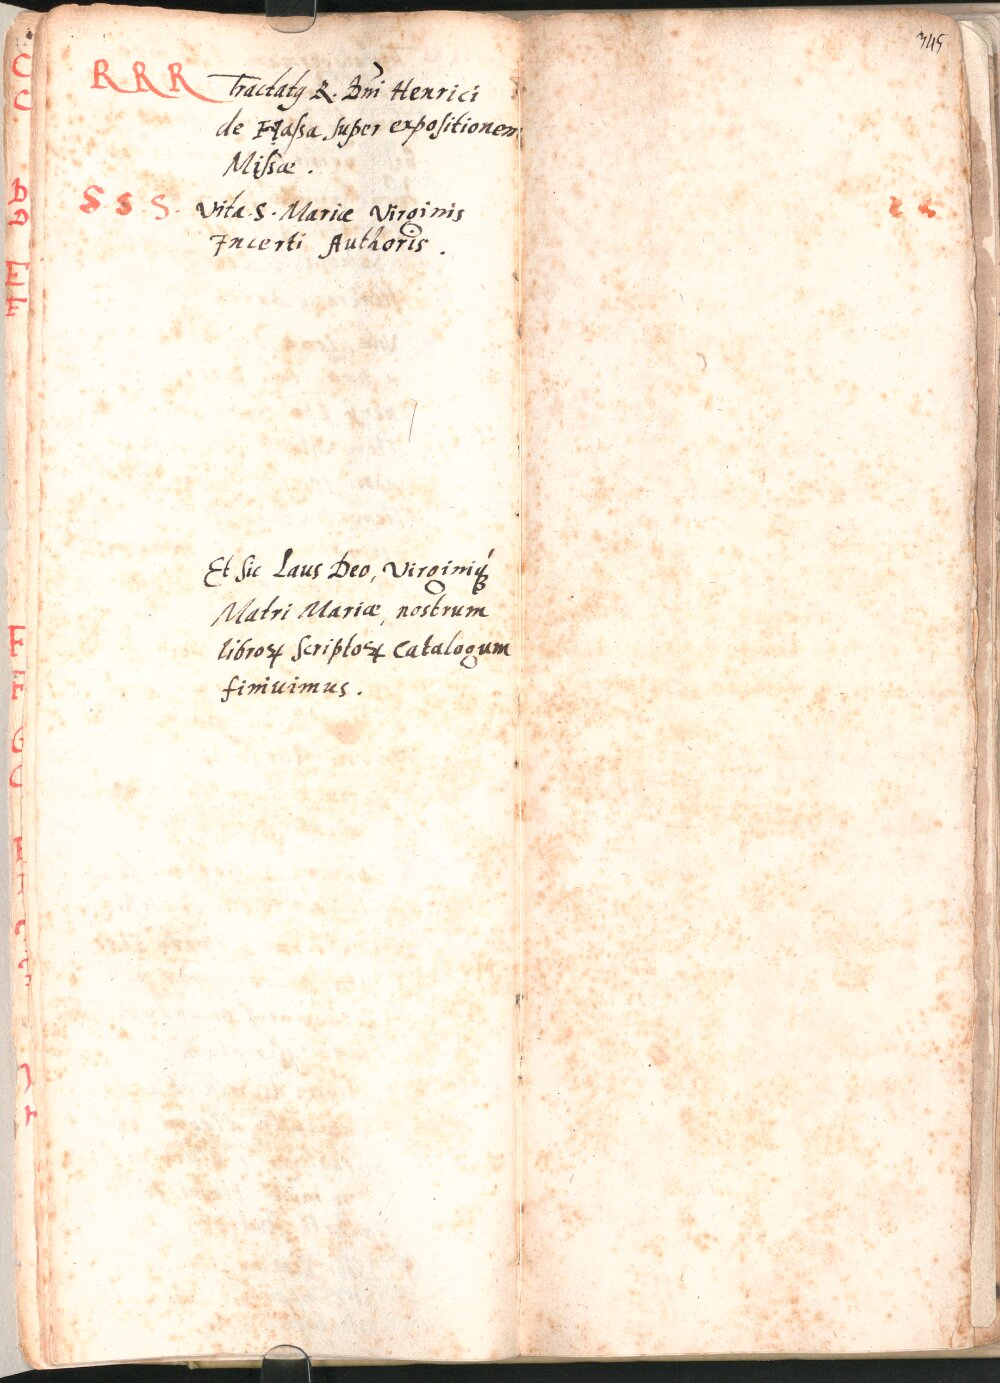 345
R R R Tractatꝰ R. Dñi Henrici
de Hassa super expositionem
Missæ.
S. S. S. Vita S. Mariæ Virginis
Incerti Authoris.
Et sic Laus Deo, Virginiq́ꝫ
Matri Mariæ, nostrum
libroꝝ scriptoꝝ Catalogum
finiuimus.